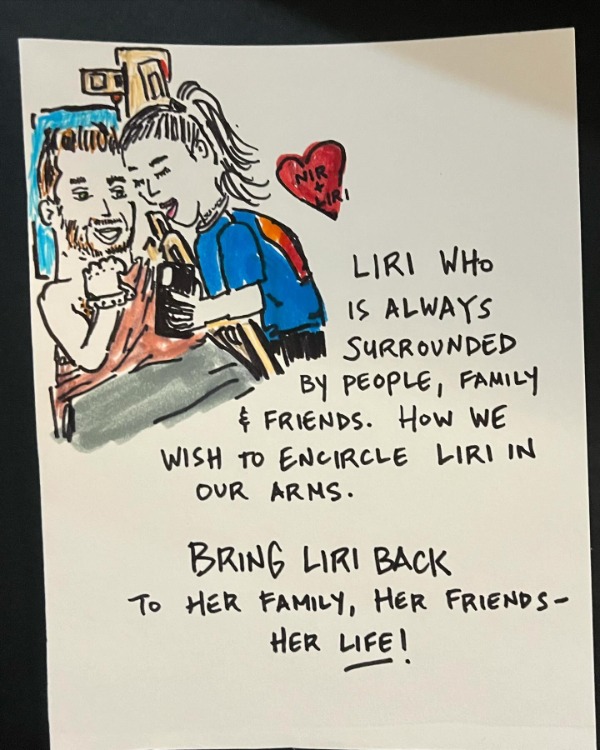 NIR
+
LIRI
LIRI WHO
IS ALWAYS
SURROUNDED
BY PEOPLE, FAMILY
& FRIENDS. HOW WE
WISH TO ENCIRCLE LIRI IN
OUR ARMS.
BRING LIRI BACK
TO HER FAMILY, HER FRIENDS-
HER LIFE!